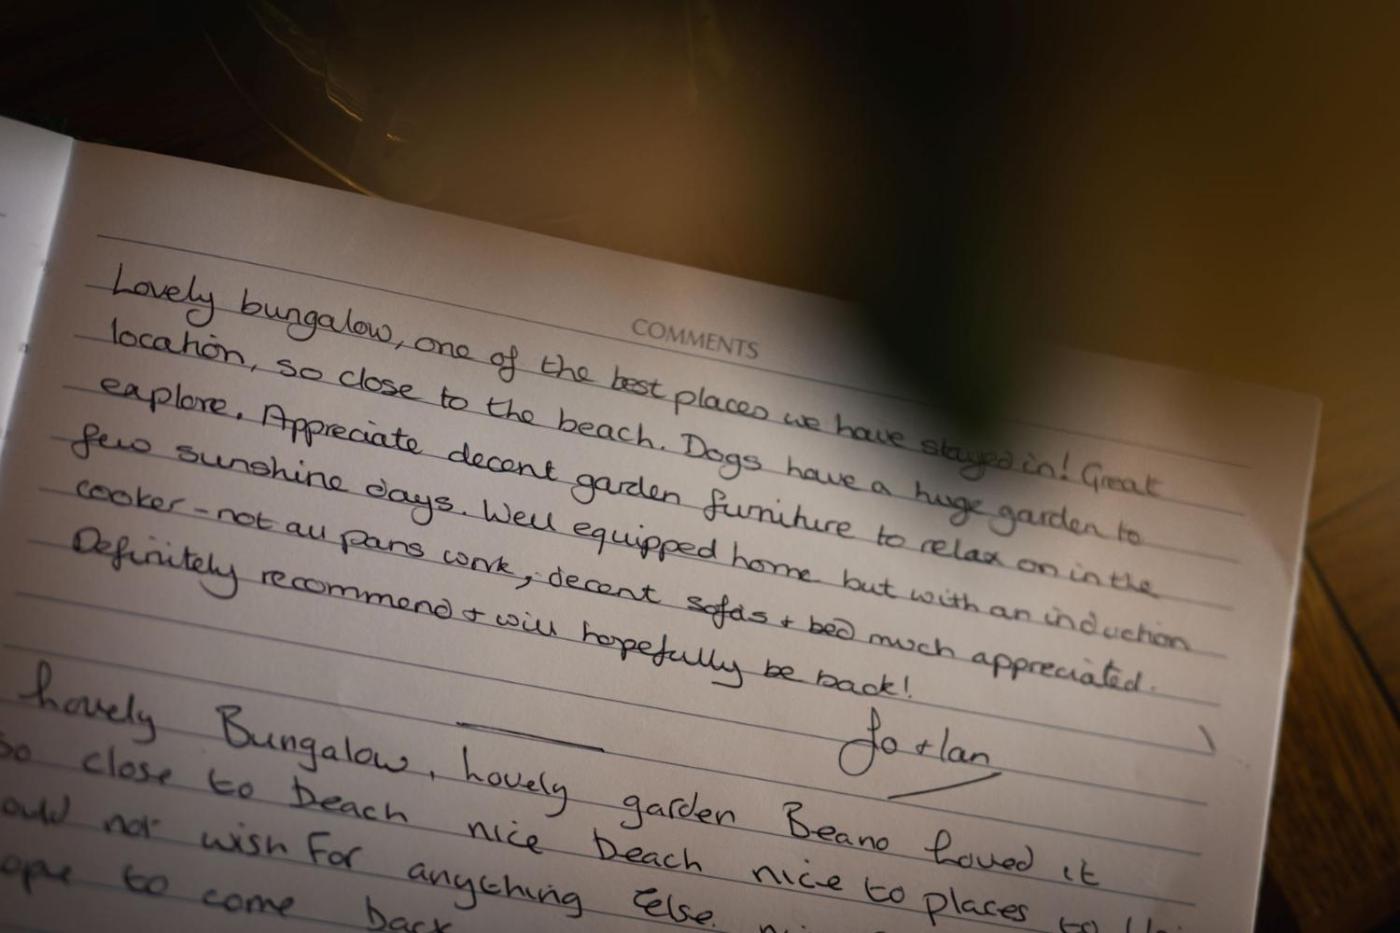 COMMENTS
Lovely bungalow, one of the best places we have stayed in! Great
location, so close to the beach. Dogs have a huge garden to
explore. Appreciate decent garden furniture to relax on in the
few sunshine days. Well equipped home but with an induction
cooker - not all pans work, decent sofas + bed much appreciated.
Definitely recommend + will hopefully be back!
Jo + Ian
Lovely Bungalow, Lovely garden Beano Loved it
so close to beach nice beach nice to places to
not wish For anything Else.
to come back